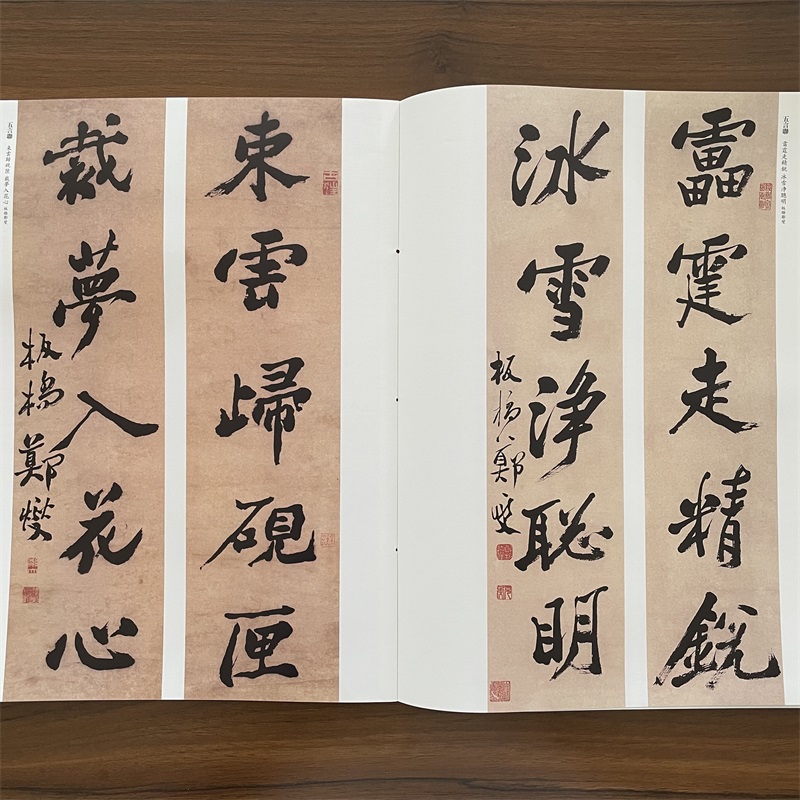 五言聯 雷霆走精銳 冰雪净聰明 板橋鄭燮
靁霆走精銳
冰雪净聰明
板橋鄭燮
束雲歸硯匣
裁夢入花心
板橋鄭燮
五言聯 束雲歸硯匣 裁夢入花心 板橋鄭燮